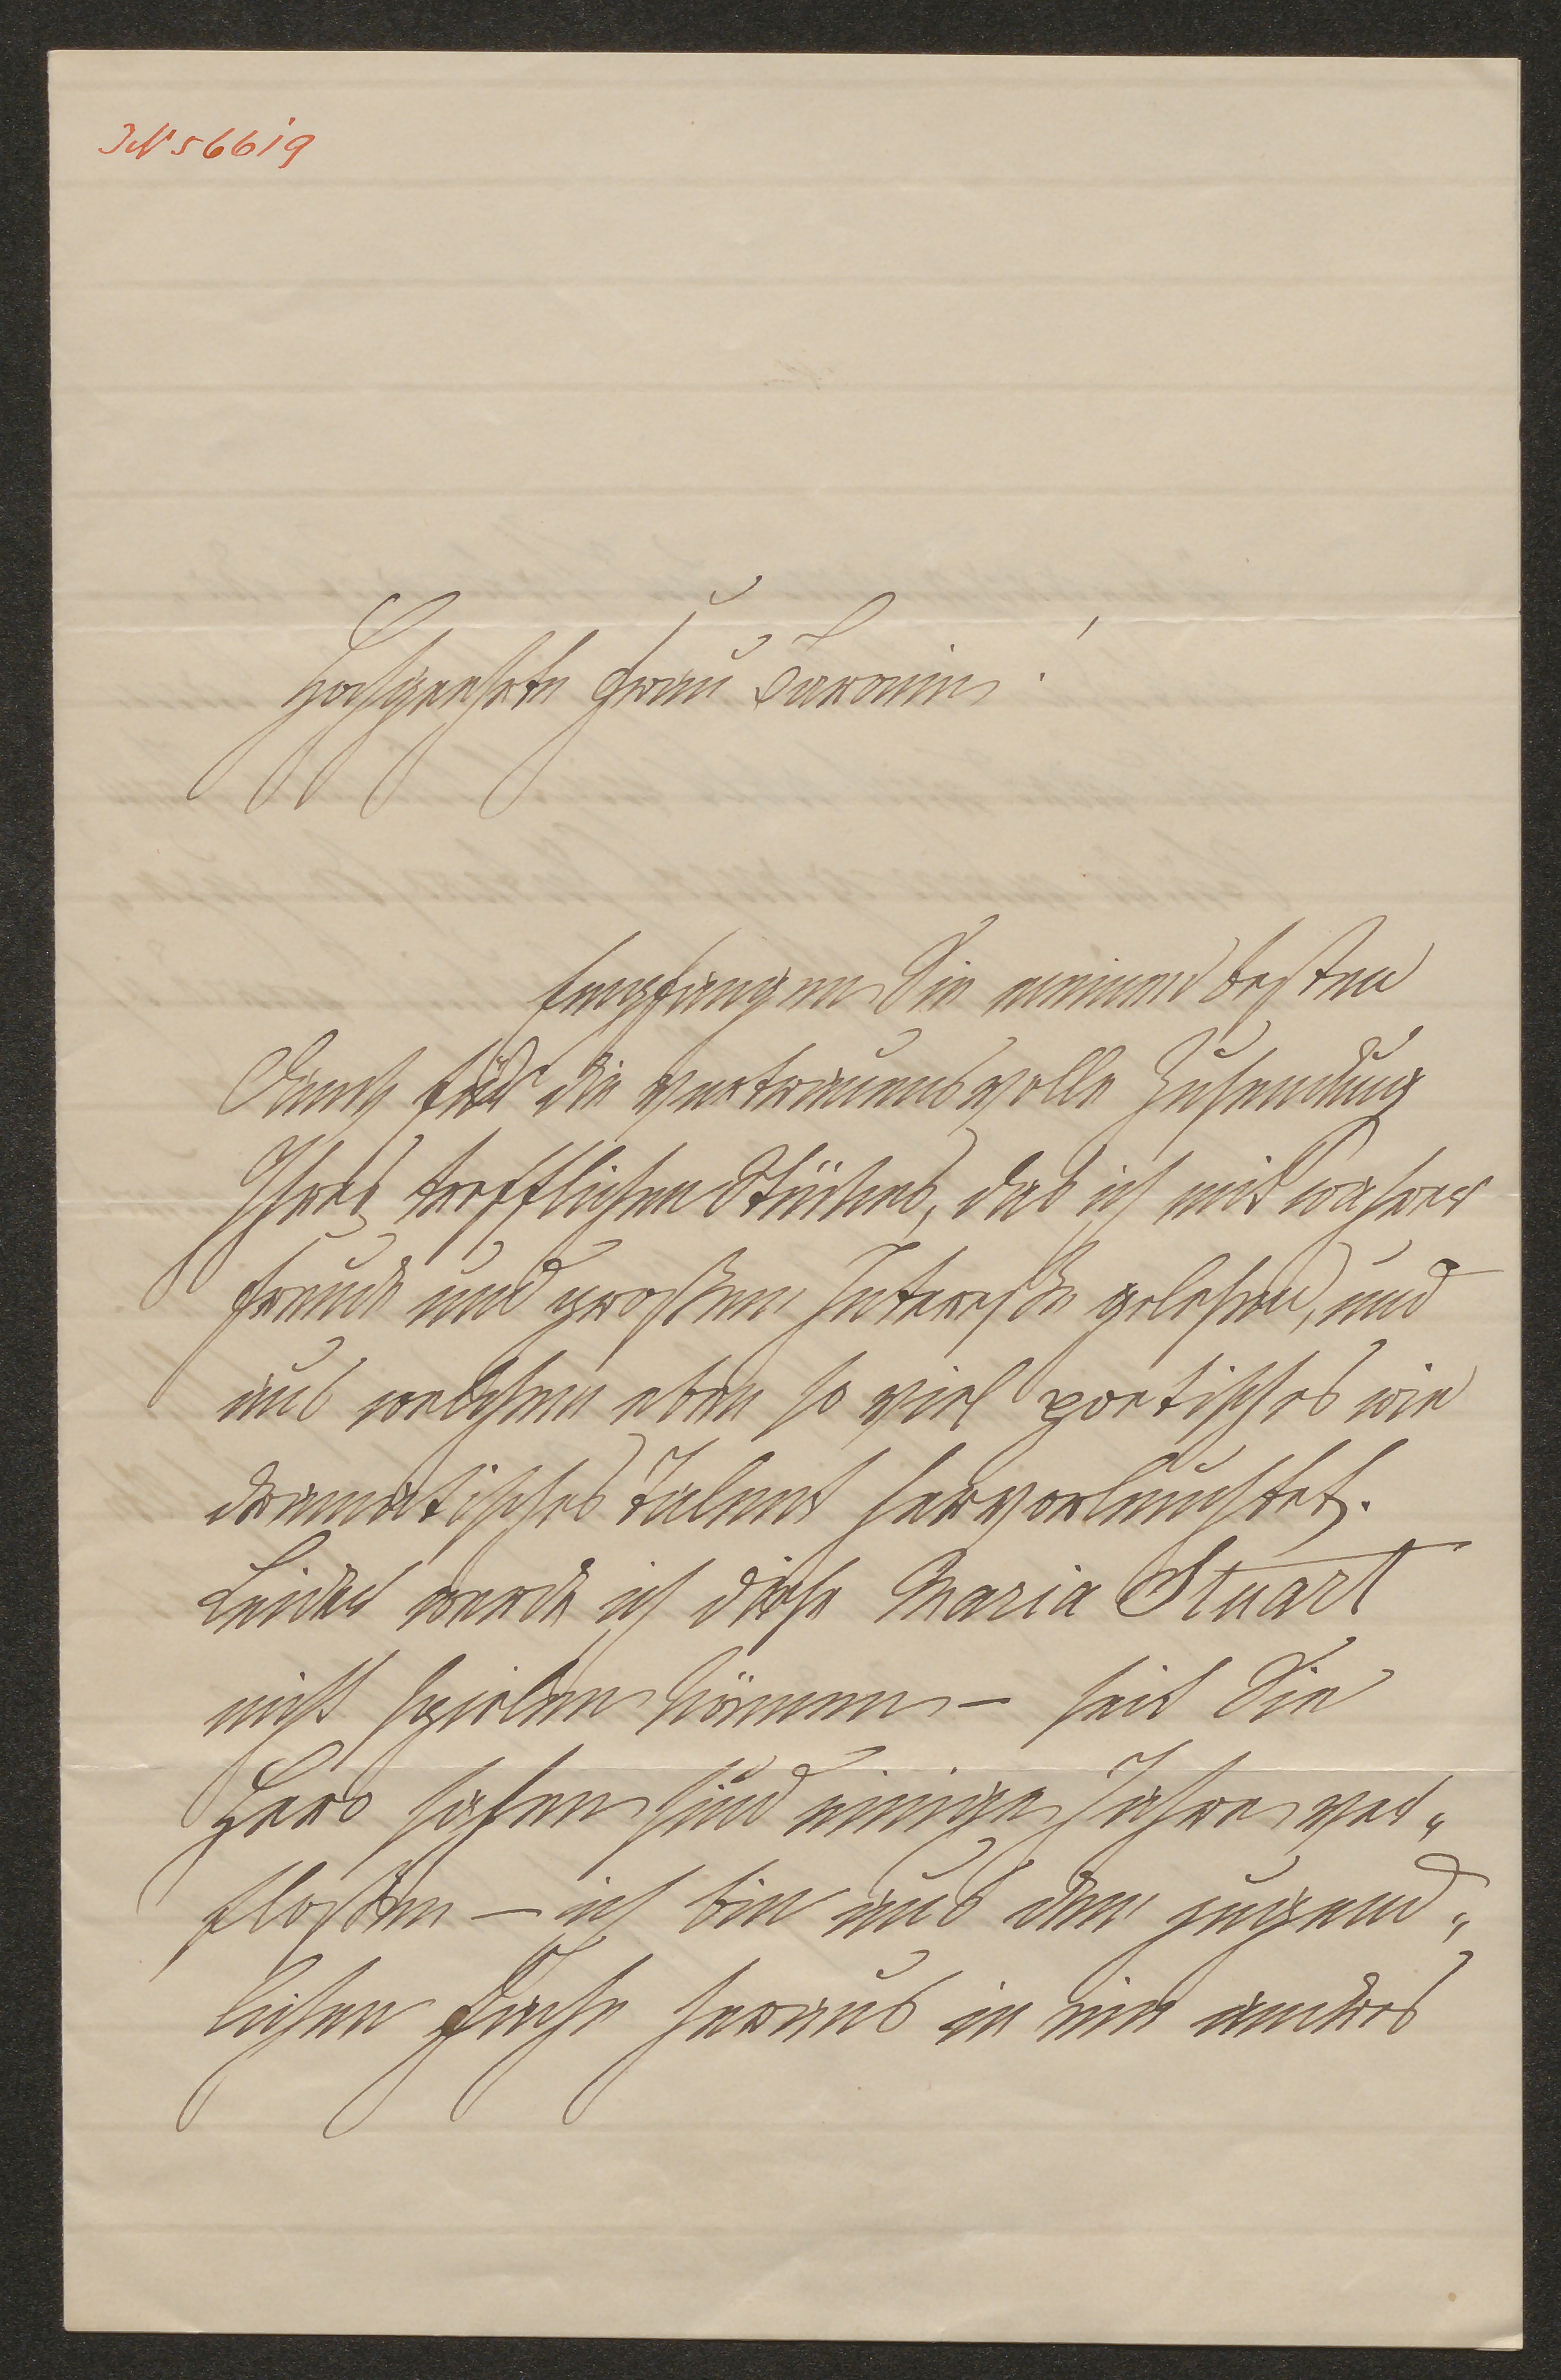 IN 56619
Hochgeehrte Frau Baronin!
Empfangen Sie meinen besten
Dank für die vertrauensvolle Zusendung
Ihres trefflichen Stückes, das ich mit wahrer
Freude und großem Interesse gelesen, und
aus welchem eben so viel poetisches wie
dramatisches Talent hervorleuchtet.
Leider werde ich diese Maria Stuart
nicht spielen können – seit Sie
Hero sahen sind einige Jahre ver„
flossen – ich bin aus dem jugend„
lichen Fache heraus in ein andres